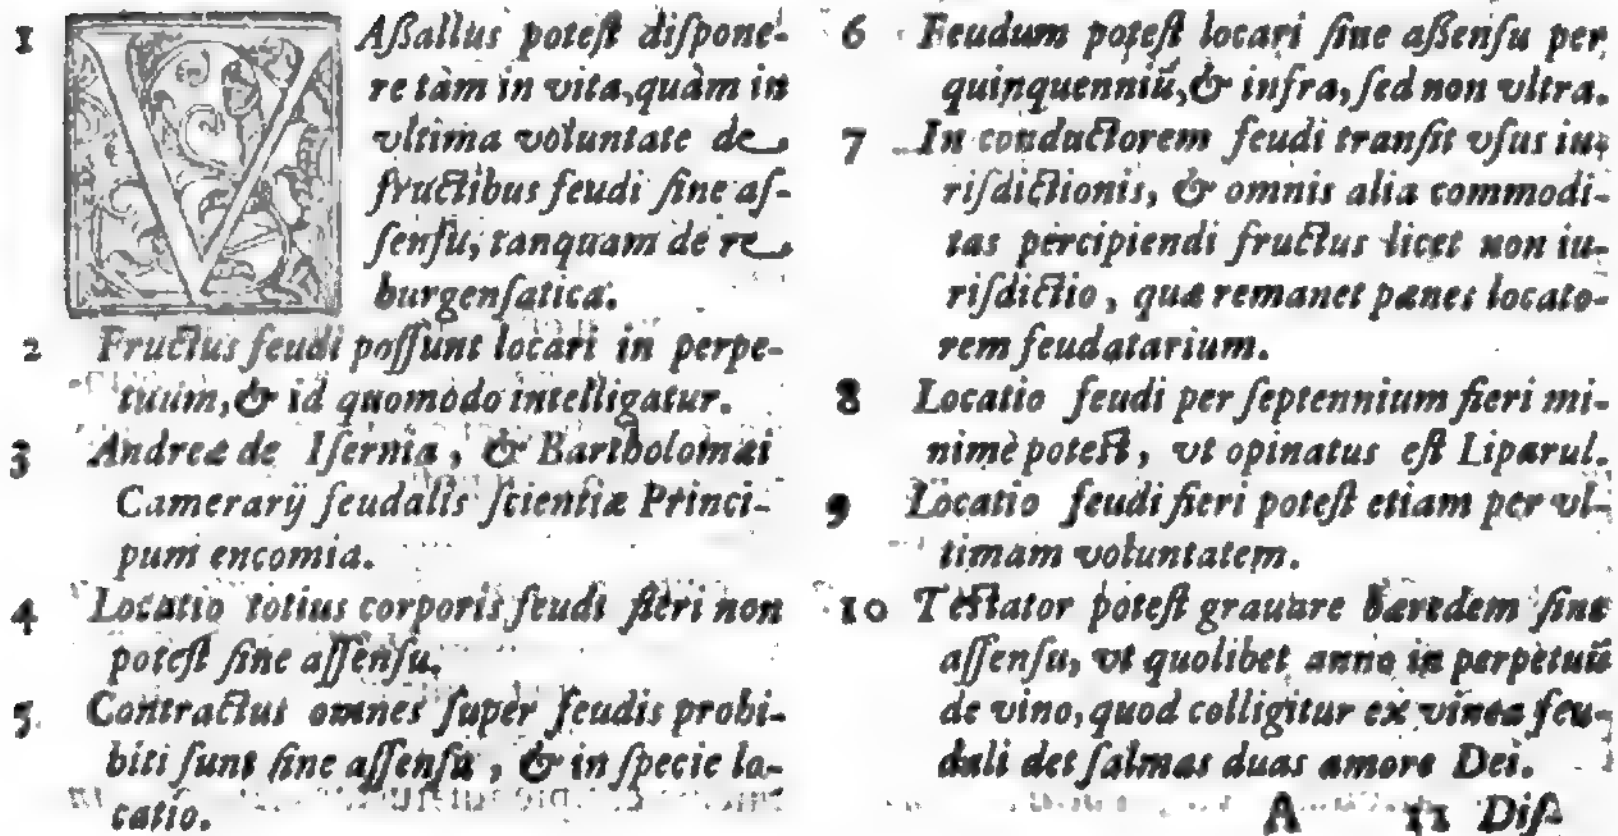 1 VAßallus poteſt diſpone-
re tàm in vita, quàm in
vltima voluntate de
fructibus feudi ſine aſ-
ſenſu, tanquam de re
burgenſatica.
2 Fructus feudi poſſunt locari in perpe-
tuum, & id quomodo intelligatur.
3 Andreæ de Iſernia, & Bartholomæi
Camerarij feudalis ſcientiæ Princi-
pum encomia.
4 Locatio totius corporis feudi fieri non
poteſt ſine aſſenſu.
5 Contractus omnes ſuper feudis prohi-
biti ſunt ſine aſſenſu, & in ſpecie lo-
catio.
6 Feudum poteſt locari ſine aßenſu per
quinquenniū, & infra, ſed non vltra.
7 In conductorem feudi tranſit vſus iu-
riſdictionis, & omnis alia commodi-
tas percipiendi fructus licet non iu-
riſdictio, quæ remanet pænes locato-
rem feudatarium.
8 Locatio feudi per ſeptennium fieri mi-
nimè poteſt, vt opinatus eſt Liparul.
9 Locatio feudi fieri poteſt etiam per vl-
timam voluntatem.
10 Teſtator poteſt grauare hæredem ſine
aſſenſu, vt quolibet anno in perpetuū
de vino, quod colligitur ex vinea feu-
dali det ſalmas duas amore Dei.
A 11 Diſ-